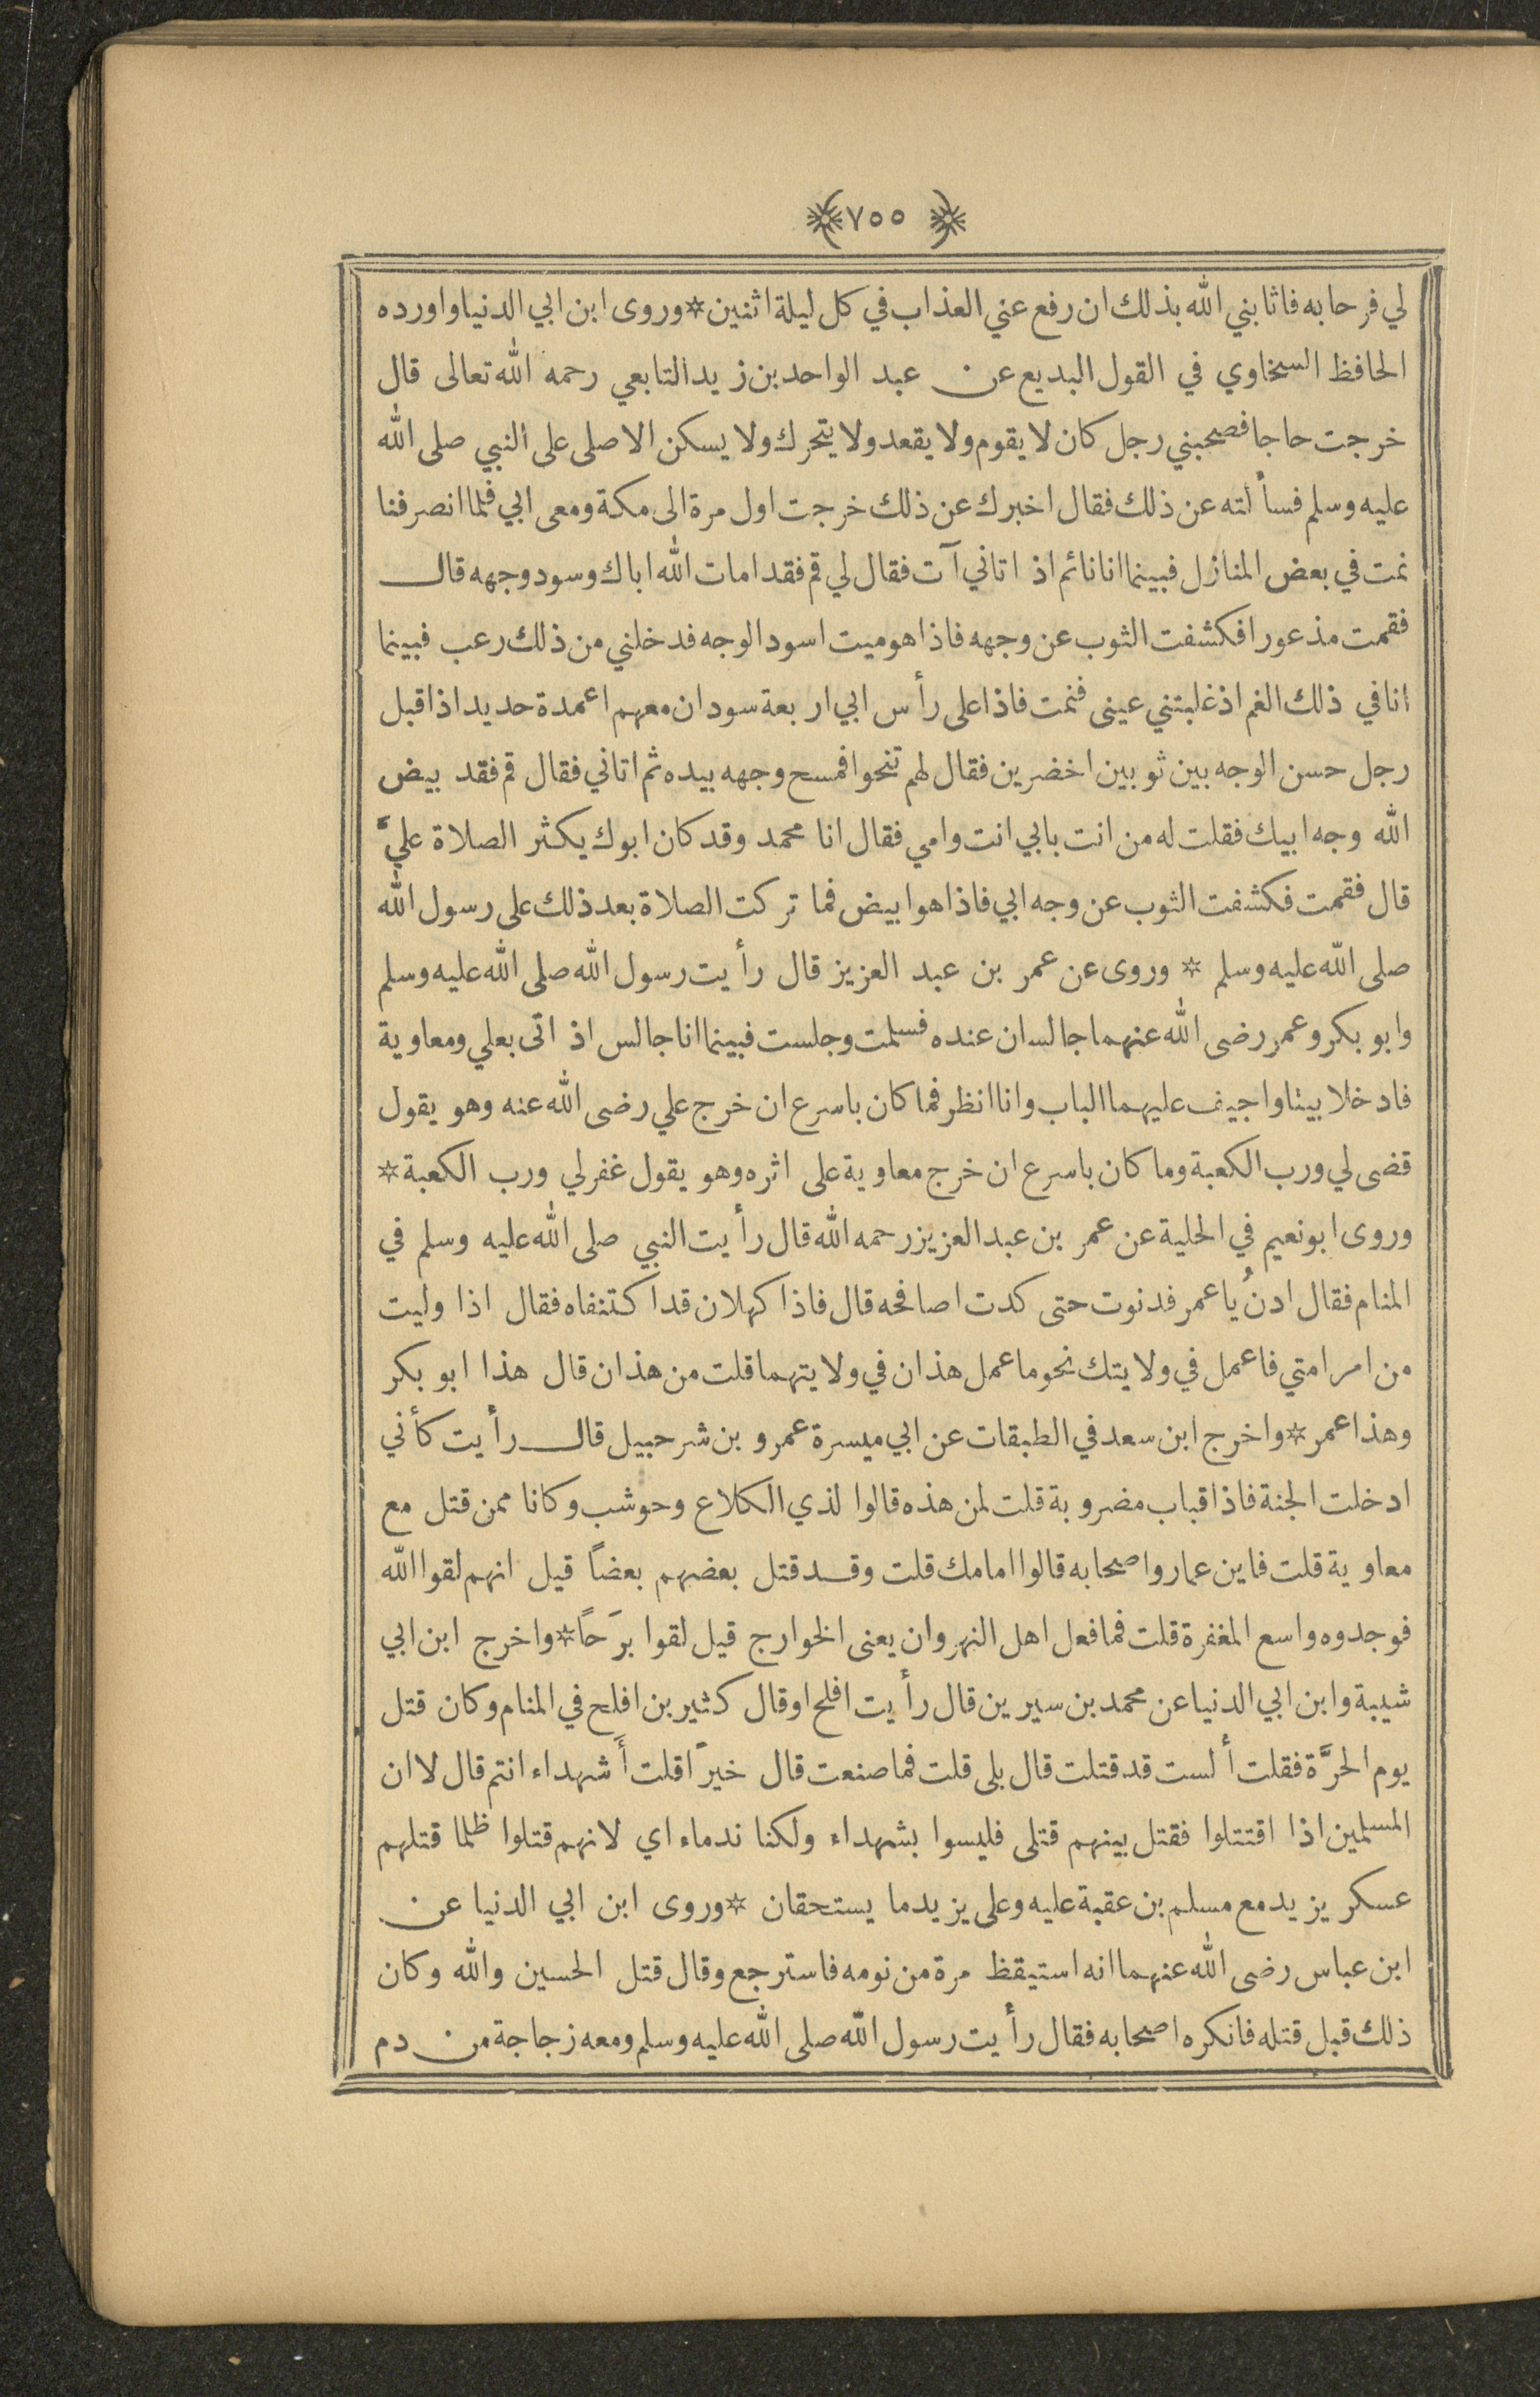 ﴿ ٧٥٥ ﴾
لي فرحا به فاثابني الله بذلك ان رفع عني العذاب في كل ليلة اثنين * وروى ابن ابي الدنيا واورده
الحافظ السخاوي في القول البديع عن عبد الواحد بن زيد التابعي رحمه الله تعالى قال
خرجت حاجا فصحبني رجل كان لا يقوم ولا يقعد ولا يتحرك ولا يسكن الا صلى على النبي صلى الله
عليه وسلم فسألته عن ذلك فقال اخبرك عن ذلك خرجت اول مرة الى مكة ومعى ابي فلما انصرفنا
نمت في بعض المنازل فبينما انا نائم اذ اتاني آت فقال لي قم فقد امات الله اباك وسود وجهه قال
فقمت مذعورا فكشفت الثوب عن وجهه فاذا هو ميت اسود الوجه فدخلني من ذلك رعب فبينما
انا في ذلك الغم اذ غلبتني عينى فنمت فاذا على رأس ابي اربعة سودان معهم اعمدة حديد اذ اقبل
رجل حسن الوجه بين ثوبين اخضرين فقال لهم تنحوا فمسح وجهه بيده ثم اتاني فقال قم فقد بيض
الله وجه ابيك فقلت له من انت بابي انت وامي فقال انا محمد وقد كان ابوك يكثر الصلاة عليَّ
قال فقمت فكشفت الثوب عن وجه ابي فاذا هو ابيض فما تركت الصلاة بعد ذلك على رسول الله
صلى الله عليه وسلم * وروى عن عمر بن عبد العزيز قال رأيت رسول الله صلى الله عليه وسلم
وابو بكر وعمر رضى الله عنهما جالسان عنده فسلمت وجلست فبينما انا جالس اذ اتى بعلي ومعاوية
فادخلا بيتا واجيف عليهما الباب وانا انظر فما كان باسرع ان خرج علي رضى الله عنه وهو يقول
قضى لي ورب الكعبة وما كان باسرع ان خرج معاوية على اثره وهو يقول غفر لي ورب الكعبة *
وروى ابو نعيم في الحلية عن عمر بن عبد العزيز رحمه الله قال رأيت النبي صلى الله عليه وسلم في
المنام فقال ادنُ يا عمر فدنوت حتى كدت اصافحه قال فاذا كهلان قد اكتنفاه فقال اذا وليت
من امر امتي فاعمل في ولايتك نحو ما عمل هذان في ولايتهما قلت من هذان قال هذا ابو بكر
وهذا عمر * واخرج ابن سعد في الطبقات عن ابي ميسرة عمرو بن شرحبيل قال رأيت كأني
ادخلت الجنة فاذا قباب مضروبة قلت لمن هذه قالوا لذي الكلاع وحوشب وكانا ممن قتل مع
معاوية قلت فاين عمار واصحابه قالوا امامك قلت وقد قتل بعضهم بعضاً قيل انهم لقوا الله
فوجدوه واسع المغفرة قلت فما فعل اهل النهروان يعنى الخوارج قيل لقوا برَحاً * واخرج ابن ابي
شيبة وابن ابي الدنيا عن محمد بن سيرين قال رأيت افلح او قال كثير بن افلح في المنام وكان قتل
يوم الحرَّة فقلت ألست قد قتلت قال بلى قلت فما صنعت قال خيرًا قلت أَشهداء انتم قال لا ان
المسلمين اذا اقتتلوا فقتل بينهم قتلى فليسوا بشهداء ولكنا ندماء اي لانهم قتلوا ظلما قتلهم
عسكر يزيد مع مسلم بن عقبة عليه وعلى يزيد ما يستحقان * وروى ابن ابي الدنيا عن
ابن عباس رضى الله عنهما انه استيقظ مرة من نومه فاسترجع وقال قتل الحسين والله وكان
ذلك قبل قتله فانكره اصحابه فقال رأيت رسول الله صلى الله عليه وسلم ومعه زجاجة من دم